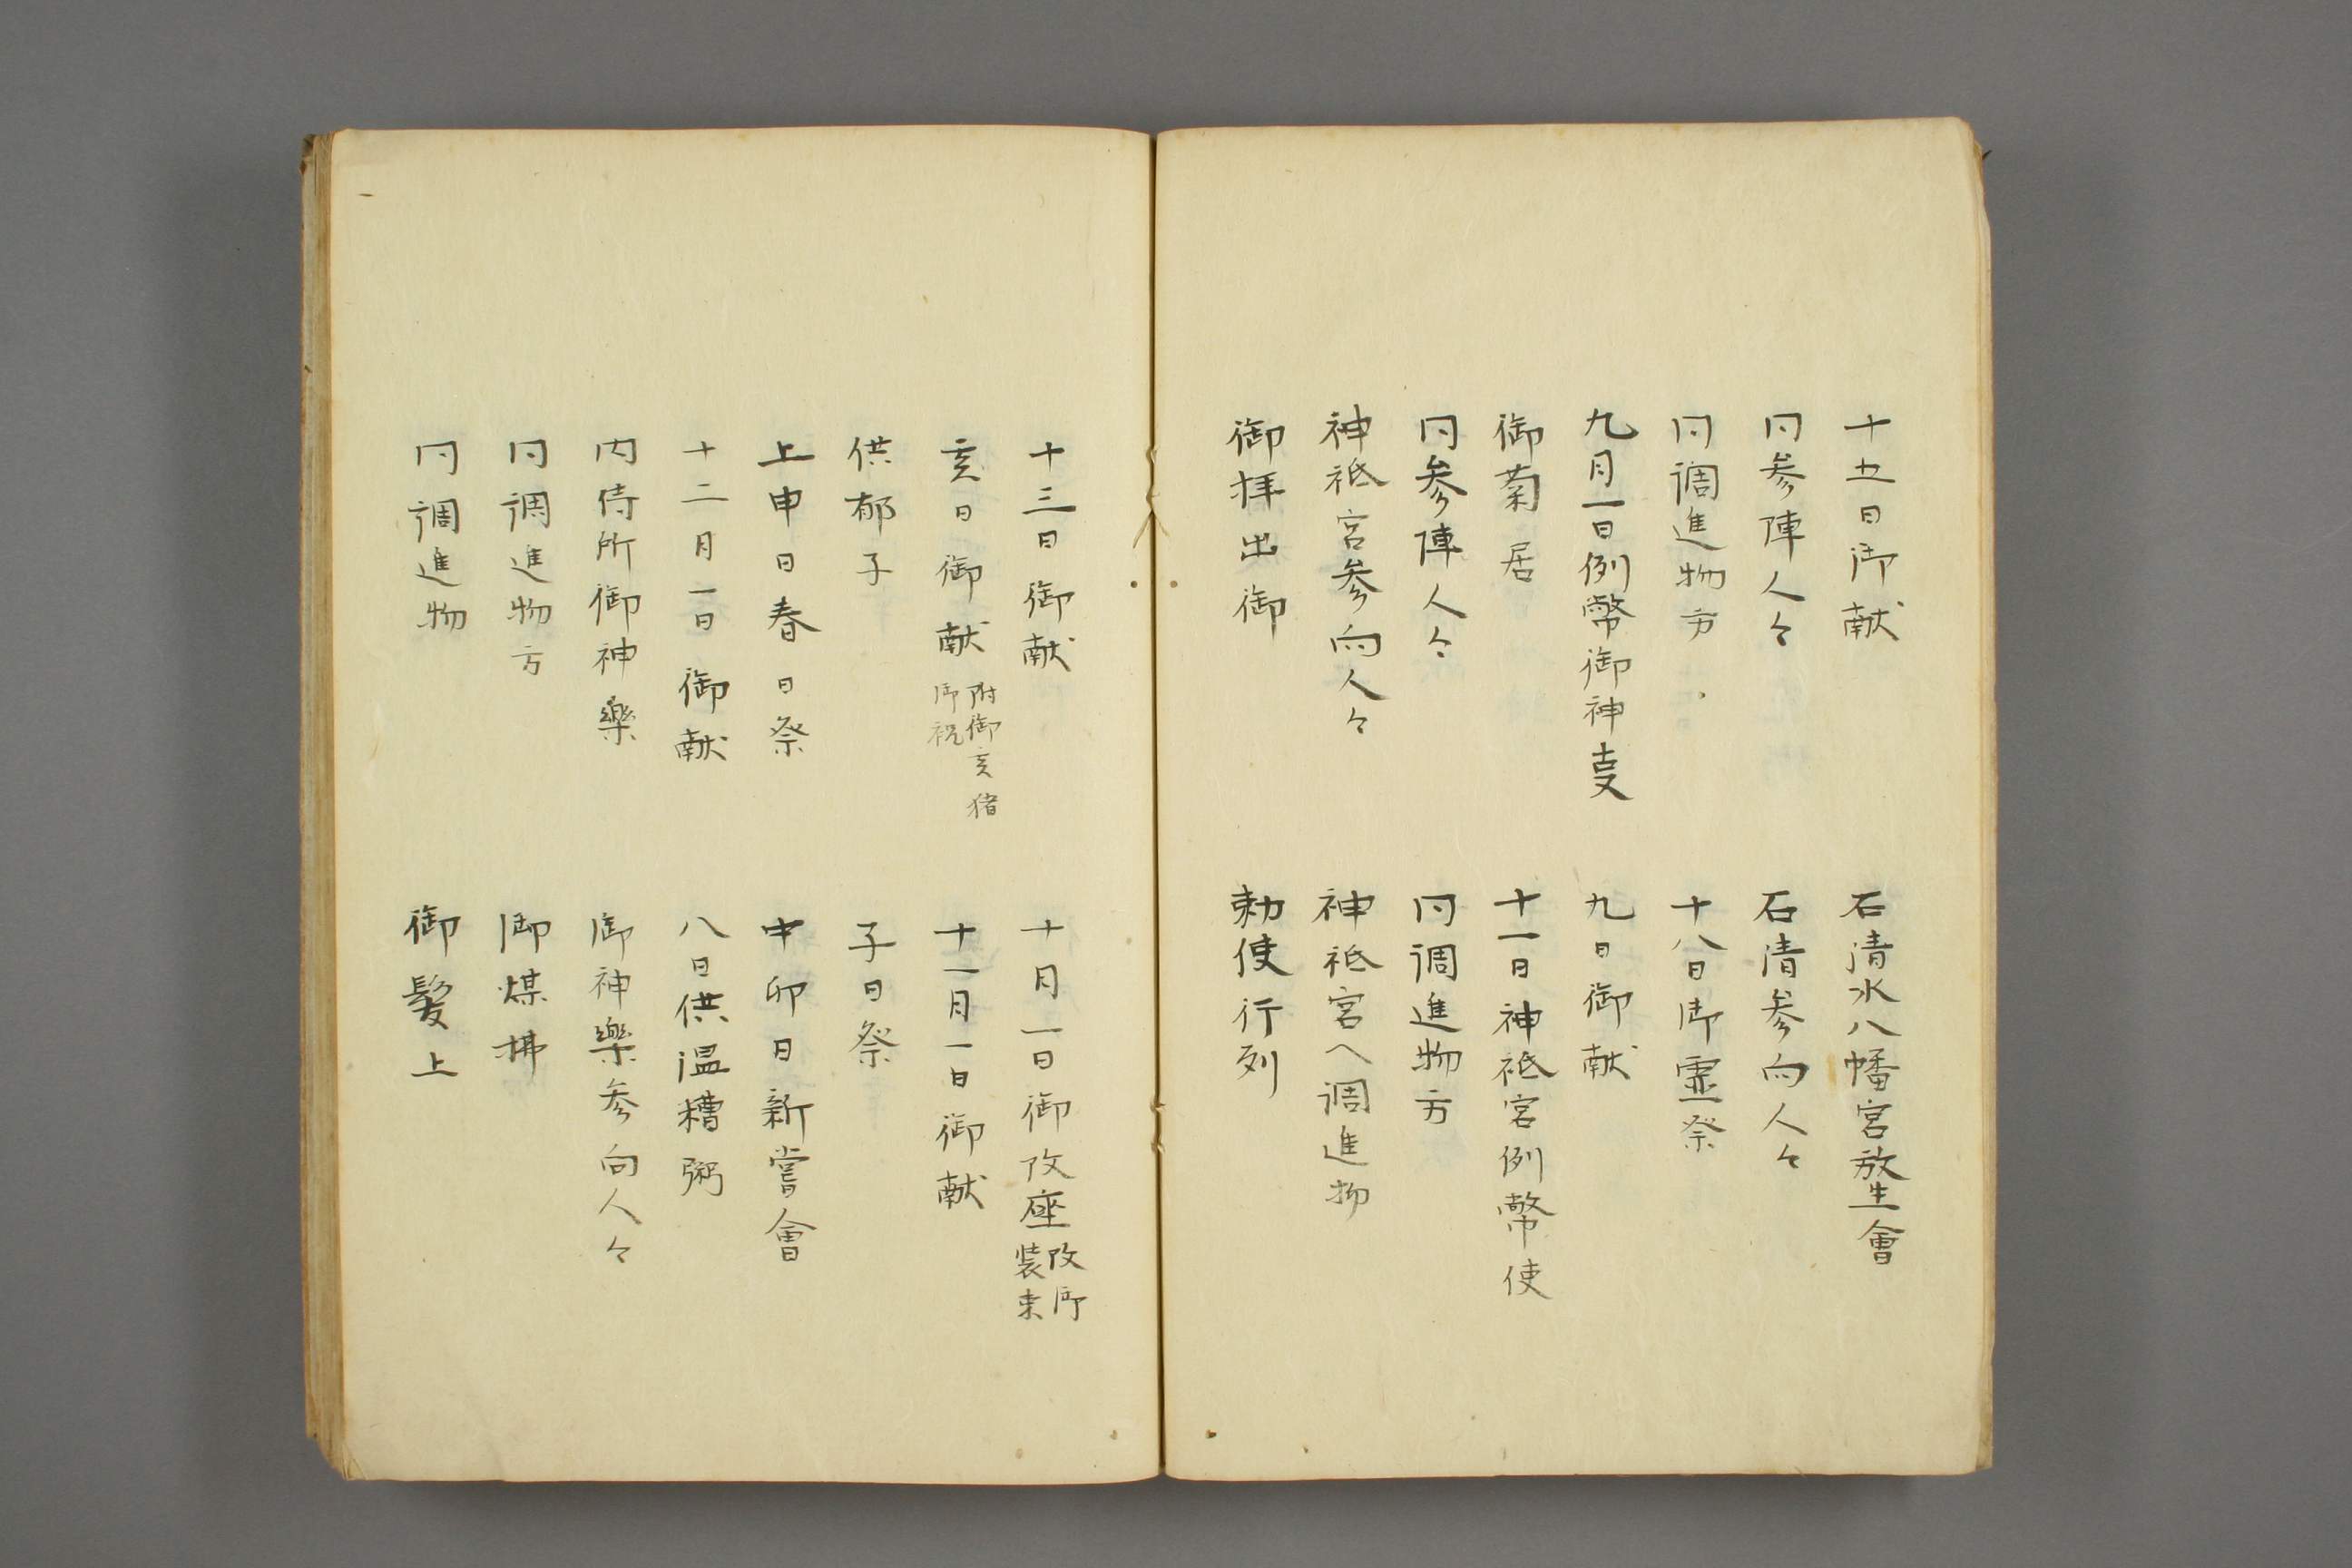 十五日御献
石清水八幡宮放生會
同参陣人々
石清参向人々
同調進物方
十八日御霊祭
九月一日例幣御神叓
九日御献
御菊居
十一日神祇宮例幣使
同参陣人々
同調進物方
神祇宮参向人々
神祇宮へ調進物
御拝出御
勅使行列
十三日御献
十月一日御改座 改御
装束
亥日御献 附御亥猪
御祝
十一月一日御献
供郁子
子日祭
上申日春日祭
中卯日新嘗會
十二月一日御献
八日供温糟粥
内侍所御神樂
御神樂参向人々
同調進物方
御煤拂
同調進物
御髪上